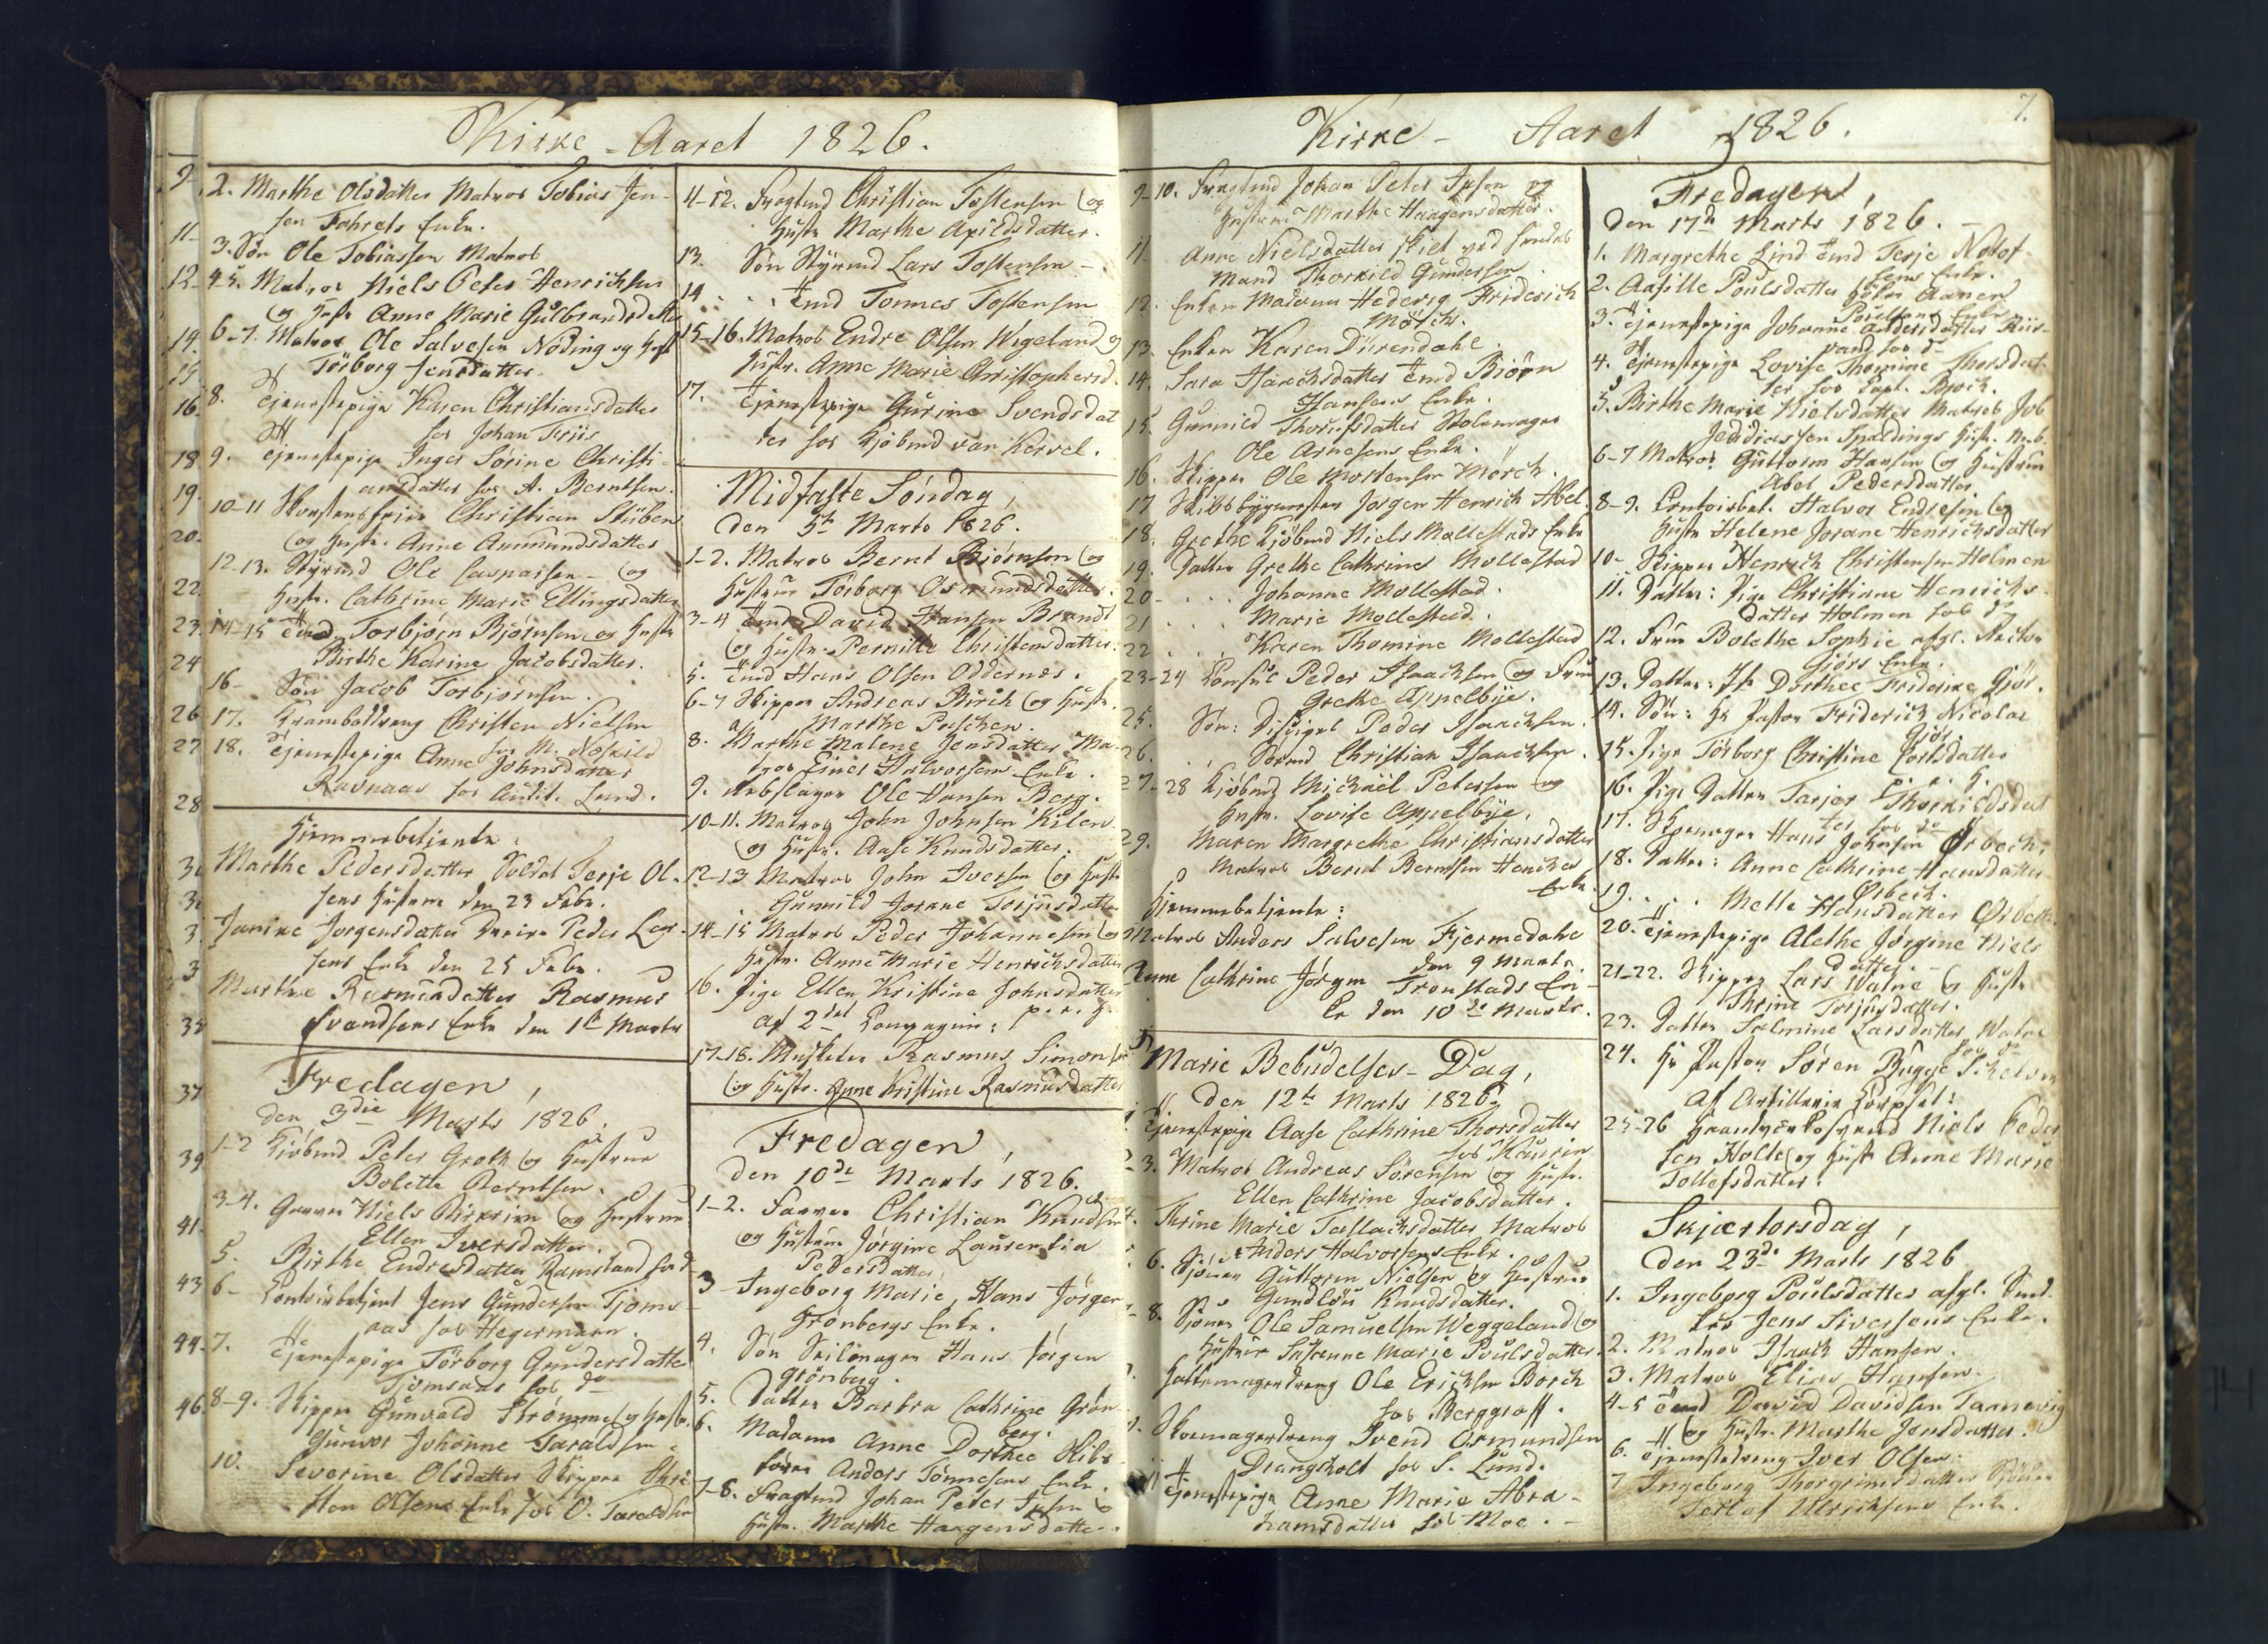 Kirke-Aaret 1826.
2. Marthe Olsdatter Matros Tobias Jen-
sen Enke.
3. Søn Ole Tobiassen Matros
4-5. Matros Niels Peter Henrichsen
og Hustr Anne Marie Gulbrandsdatter
6-7. Matros Ole Salvesen Nøding og Hust
Törborg Jensdatter.
8. Tjenestepige Karen Christiansdatter
for Johan Friis
9. Tjenestepige Inger Sörine Christi-
ansdatter hos A. Berntsen.
10-11 Christian Stüben
og Hustr. Anne Aanmundsdatter
12-13. Styrmd Ole Casparsen - og
Hustr. Cathrine Marie Ellingsdatter
14-15 Tmd Torbjørn Bjørnsen og Hustr
Birthe Karine Jacobsdatter.
16- Søn Jacob Torbjørnsen.
17. Kramboddreng Christen Nielsen
hos M.
18. Tjenestepige Anne Johnsdatter
Ravnaas hos Lund.
Hjemmebetjente.
Marthe Pedersdatter Soldat Terje Ol-
sens Hustrue den 23 Febr.
Janike Jørgensdatter Peder Lar-
sens Enke den 25 Febr.
Marthe Rasmusdatter Rasmus
Svendsens Enke den 1te Marts
Fredagen,
den 3die Marts 1826.
1-2 Kjöbmd Peter Groth og Hustrue
Bolette Berntsen.
3-4. Garver Niels og Hustrue
Ellen Iversdatter.
5. Birthe Endresdatter Ramsland
6- Jens Gundersen Tjoms-
aas hos Hegermann.
7. Tjenestepige Törborg Gundersdatter
Tjomsaas hos do
8-9. Skipper Gunvald Strømme og Hustr.
Gunvor Johanne Taraldsen.
10. Severine Olsdatter Skipper Chri-
sten Olsens Enke hos O. Taraldsen
11-12. Fragtmd Christian Tostensen og
Hustr Marthe Axildsdatter.
13. Søn Styrmd Lars Tostensen -
14 . . Tmd Tønnes Tostensen
15-16. Matros Endre Olsen Wegeland og
Hustr. Anne Marie Christophersd.
17. Tjenestepige Gurine Svendsdat
ter hos Kjöbmd van Kervel.
Midfaste Søndag,
den 5te Marts 1826.
1-2. Matros Bernt Bjørnsen og
Hustrue Törborg Osmundsdatter.
3-4 Tmd David Hansen Brandt
og Hustr. Pernille Christensdatter.
5. Tmd Hans Olsen Oddernes.
6-7 Skipper Andreas Birch og Hustr.
Marthe
8. Marthe Malene Jensdatter Ma-
tros Einer Halvorsens Enke.
9. Rebslager Ole Hansen Berg.
10-11. Matros John Johnsen Kilen
og Hustr. Aase Knudsdatter.
12-13 Matros John Iversen og Hustr
Gunnild Jorane Terjusdatter
14-15 Matros Peder Johannesen og
Hustr. Anne Marie Henrichsdatter
16. Pige Ellen Kristine Johnsdatter
p. e. H.
Af 2det Compagnie:
17-18. Musketer Rasmus Simonsen
og Hustr. Anne Kristine Rasmusdatter
Fredagen,
den 10de Marts 1826.
1-2. Farver Christian Knudsen
og Hustrue Jørgine Laurentia
Pedersdatter
3 Ingeborg Marie, Hans Jörgen
Grönbergs Enke.
4. Søn Seilmager Hans Jörgen
Grönberg.
5. Datter Barbra Cathrine Grön-
berg.
6. Madame Anne Dorthea Skibs-
fører Anders Tönnesens Enke.
7-8. Fragtmd Johan Peter Ipsen og
Hustr. Marthe Haagensdatter.
Kirke- Aaret 1826.
7.
9-10. Fragtmd Johan Peter Ipsen og
Hustrue Marthe Haagensdatter.
11- Anne Nielsdatter skilt ved hendes
Mand Thorkild Gundersen
12. Enken Madame Hedevig Friderich
Mörch.
13. Enken Karen Dürendahl.
14. Sara Isaachsdatter Tmd Biörn
Hansens Enke.
15. Gunnild Thorisdatter Stolemager
Ole Arnesens Enke.
16. Skipper Ole Mortensen Mörch.
17 Skibsbygmester Jørgen Henrich Abel.
18. Grethe Kjöbmd Niels Mollestads Enke
19. Datter Grethe Cathrine Mollestad
20 . . . Johanne Mollestad.
21 . . . Marie Mollestad.
22 . . . Karen Thomine Mollestad
23-24 Consul Peder Isaachsen og Frue
Grethe Appelbye.
25. Søn: Discipel Peder Isaachsen.
26. . . Svend Christian Isaachsen.
27-28 Kjöbmd Michael Petersen og
Hustr. Lovise Appelbye.
29. Maren Margrethe Christiansdatter
Matros Bernt Berntsen Henches
Enke.
Hjemmebetjente:
Matros Anders Salvesen Fjermedahl
den 9 Marts.
Anne Cathrine Jörgen Tronstads En-
ke den 10de Marts.
Marie Bebudelses-Dag,
den 12te Marts 1826.
Tjenestepige Aase Cathrine Thorsdatter
hos Kaurin
3. Matros Andreas Sörensen og Hustr.
Ellen Cathrine Jacobsdatter.
Thrine Marie Tallachsdatter Matros
Anders Halvorsens Enke.
6. Sjöman Guttorm Nielsen og Hustrue
Gundlöu Knudsdatter.
8. Sjöman Ole Samuelsen Weggeland og
Hustrue Susanne Marie Poulsdatter.
Hattemagerdreng Ole Erichsen Borch
hos Berggraff.
Skomagerdreng Svend Osmundsen
Drangsholt hos S. Lund.
Tjenestepige Anne Marie Abra-
hamsdatter hos Moe. -
Fredagen,
den 17de Marts 1826. -
1. Margrethe Lind Tmd Terje Notof-
sens Enke.
2. Aasille Poulsdatter Aanen
Poulsens Enke
3. Tjenestepige Johanne Andersdatter
hos do
4. Tjenestepige Lovise Thomine Thorsdat-
ter hos Capt.
5. Birthe Marie Nielsdatter Matros Job
Jedidiassen Spaldings Hustr.
6-7 Matros Guttorm Hansen og Hustrue
Abel Pedersdatter
8-9. Halvor Endresen og
Hustr Helene Jorane Henrichsdatter
10- Skipper Henrich Christensen Holmen
11. Datter: Pige Christiane Henrichs-
datter Holmen hos do
12. Frue Bolethe Sophie afgl. Rector
Gjörs Enke.
13. Datter: Jfr Dorthea Friderike Gjör.
14. Søn: Hr Pastor Friderich Nicolai
Gjör.
15. Pige Törborg Christine Carlsdatter
p. e. H.
16. Pige Datter Tarjer Thorkildsdat
ter hos do
17. Skomager Hans Johnsen Örbech.
18. Datter: Anne Cathrine Hansdatter
Örbech.
19. . . . Mette Hansdatter Örbech.
20. Tjenestepige Alethe Jørgine Niels
datter. -
21-22. Skipper Lars Watne og Hustr
Thrine Torjusdatter.
23. Datter Salmine Larsdatter Watne
hos do
24. Hr Pastor Sören Bugge
Af Artillerie Corpset:
25-26 Niels Peder
sen Holte og Hustr Anne Marie
Tollefsdatter.
Skjærtorsdag,
den 23de Marts 1826
1. Ingeborg Poulsdatter afgl.
Jens Siversens Enke.
2. Matros Isaach Hansen.
3. Matros Elias Hansen.
4-5 Tmd David Davidsen Taanevig
og Hustr. Marthe Jensdatter.
6. Tjenestedreng Iver Olsen.
7 Ingeborg Thorgrimsdatter Sjöman
Tellef Ulrichsens Enke.